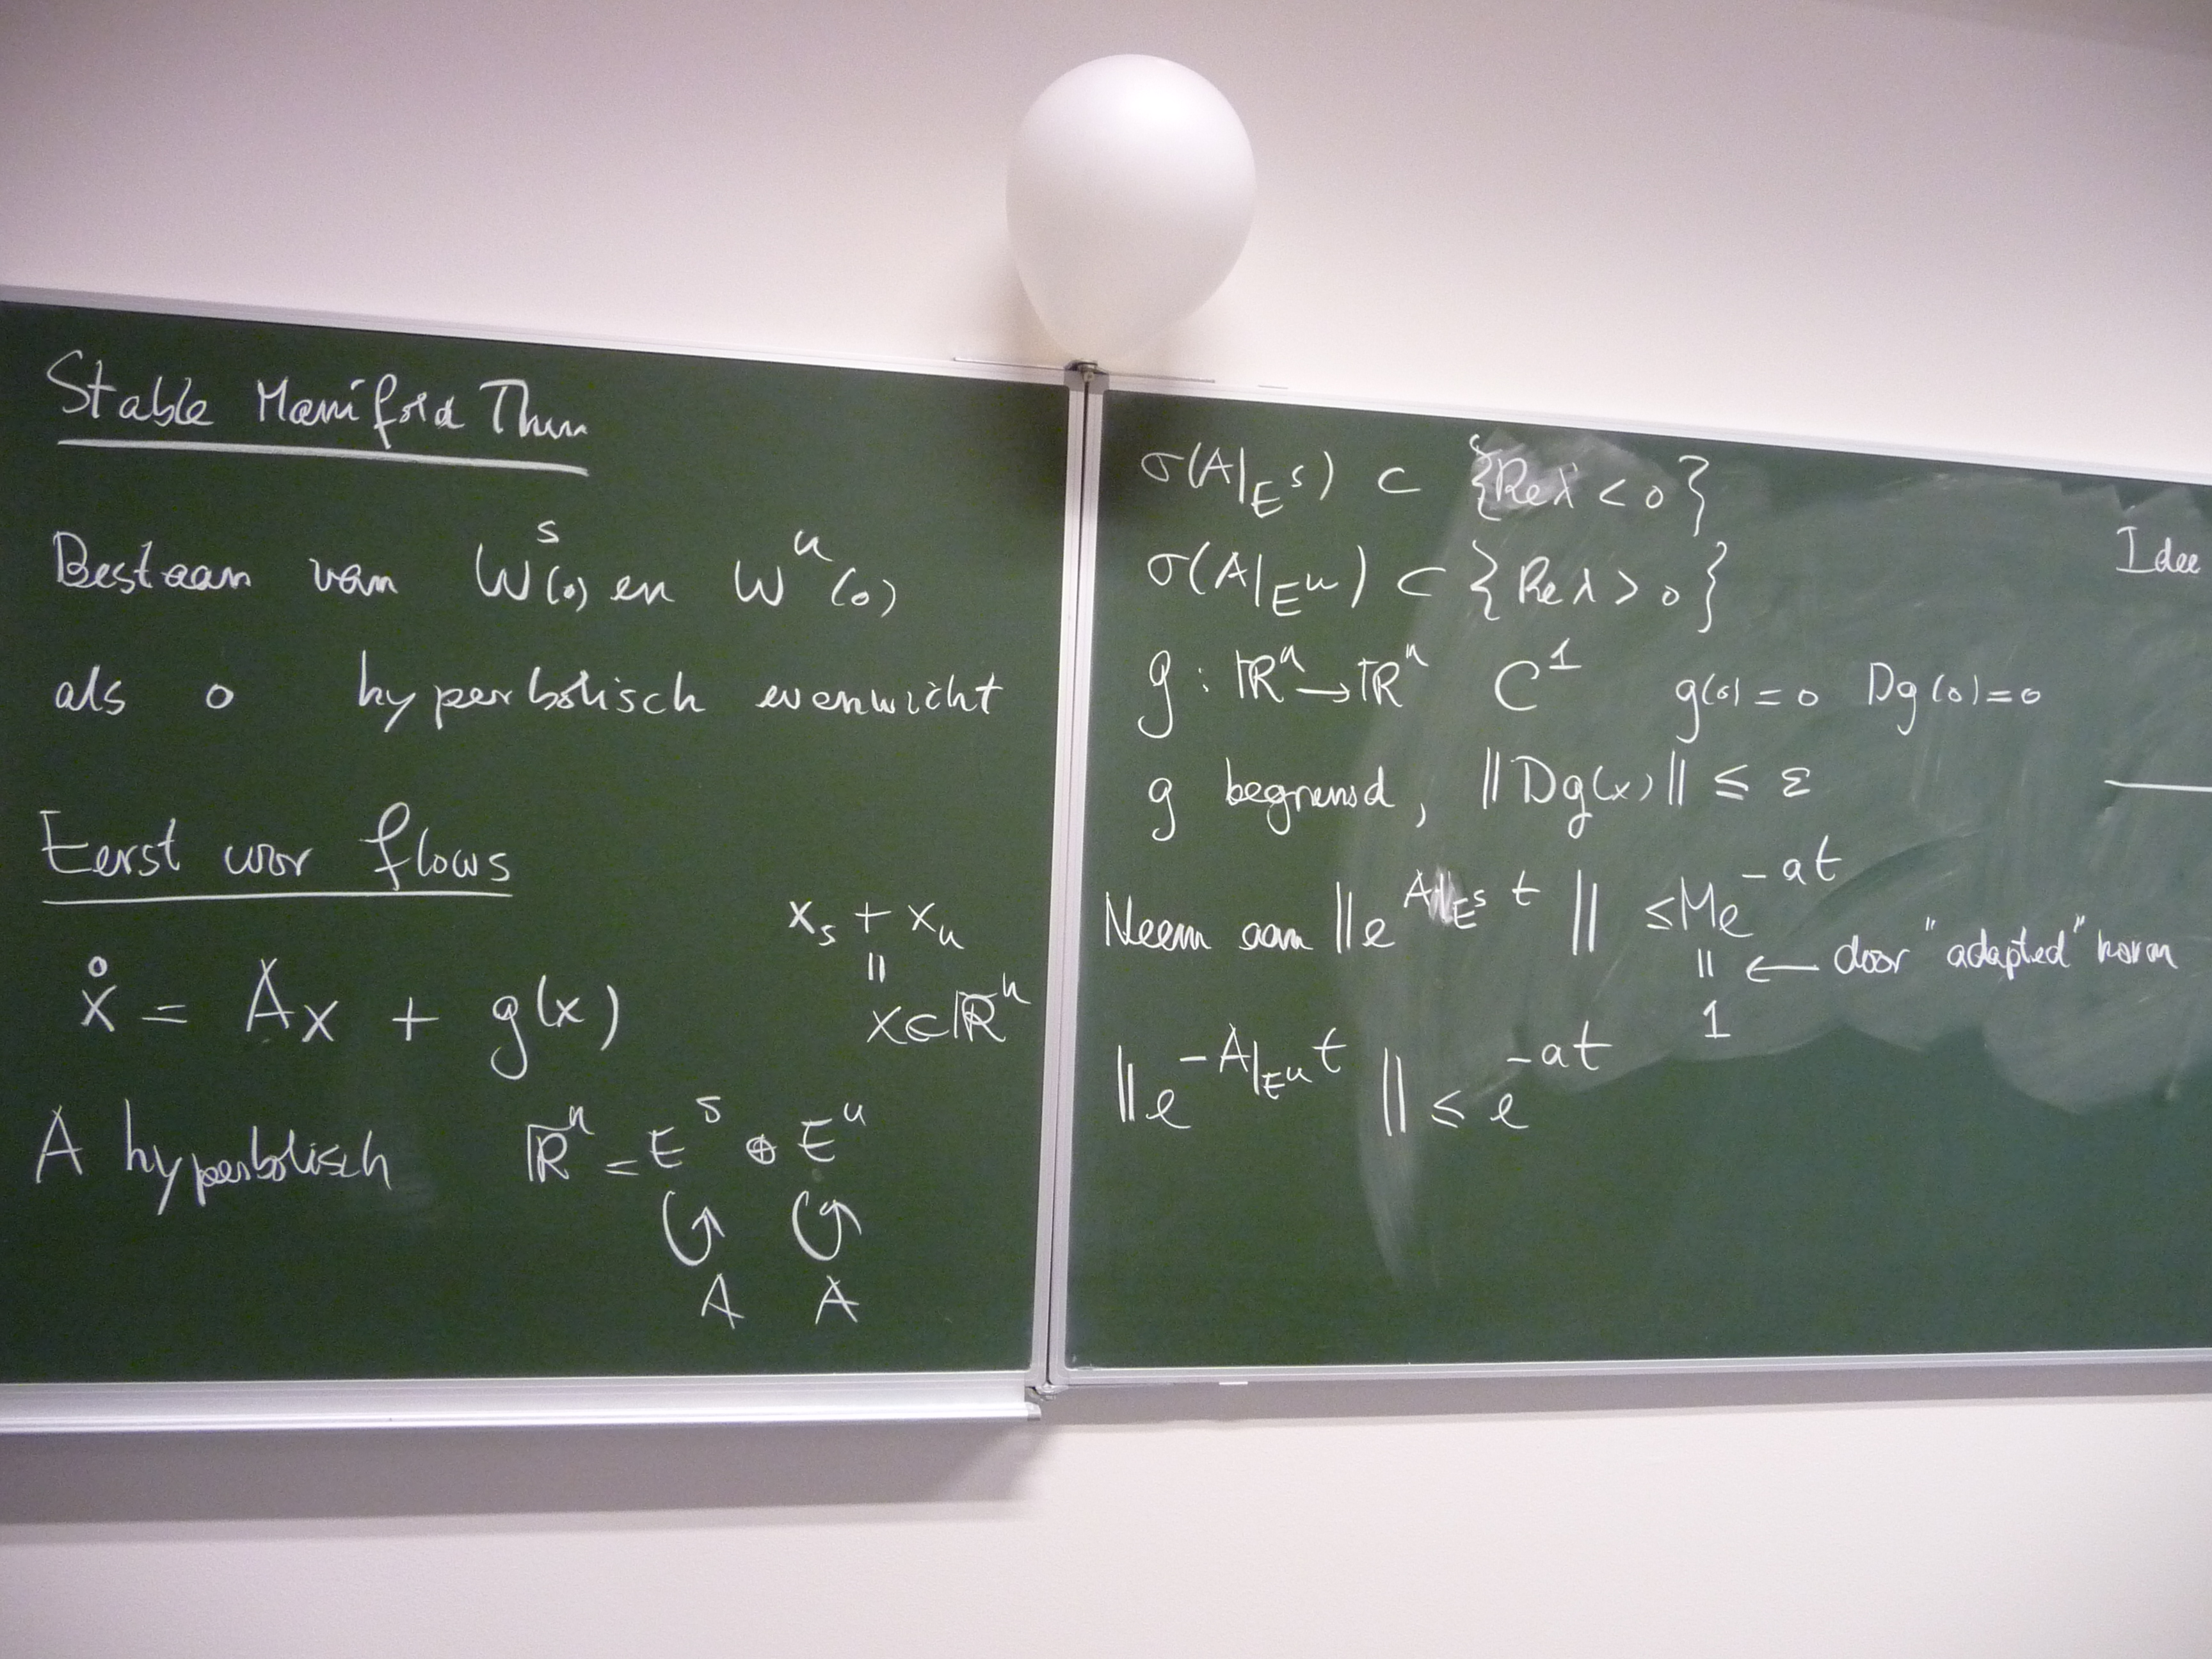 Stable Manifold Thm
Bestaan van Wˢ(0) en Wᵘ(0)
als 0 hyperbolisch evenwicht
Eerst voor flows
xₛ + xᵤ
||
ẋ = Ax + g(x) x∈ℝⁿ
A hyperbolisch ℝⁿ = Eˢ ⊕ Eᵘ
↺ ↺
A A
σ(A|_Eˢ) ⊂ {Re λ < 0}
σ(A|_Eᵘ) ⊂ {Re λ > 0}
g : ℝⁿ → ℝⁿ C¹ g(0) = 0 Dg(0) = 0
g begrensd, ||Dg(x)|| ≤ ε
Neem aan ||e^{A|_Eˢ t}|| ≤ Me^{-at}
|| ← door "adapted" norm
1
||e^{-A|_Eᵘ t}|| ≤ e^{-at}
Idee